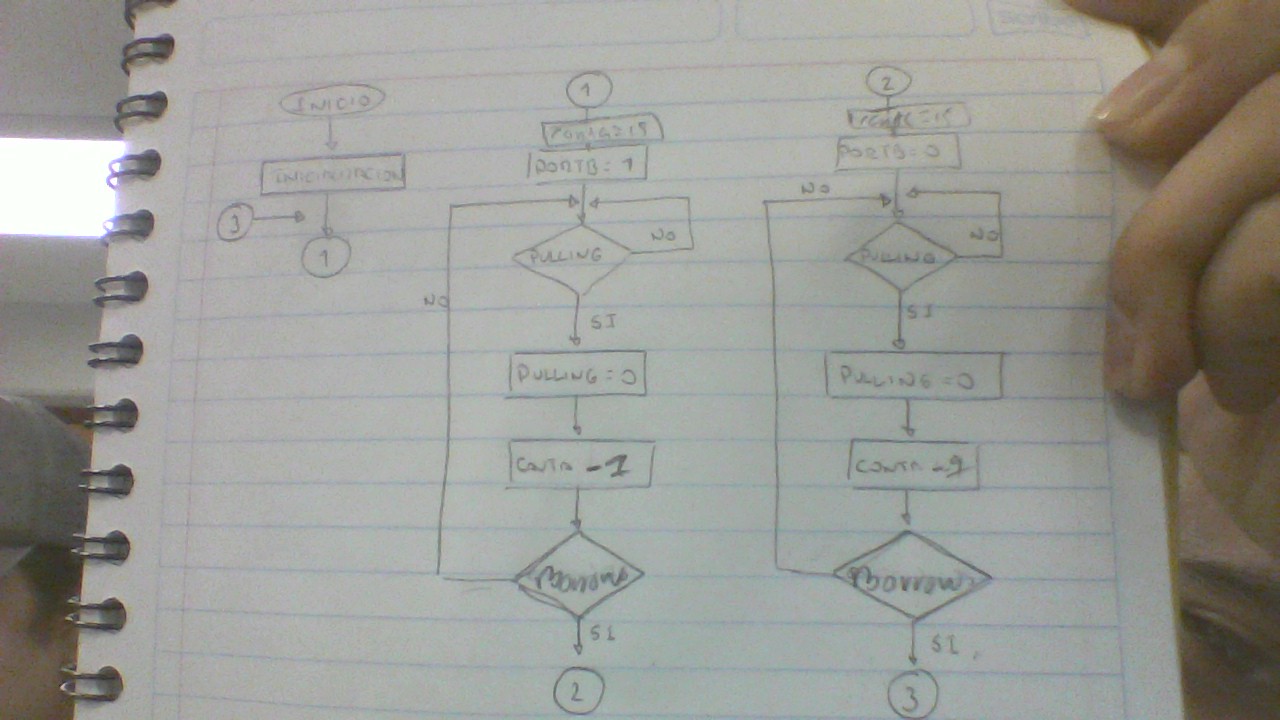 INICIO
INICIALIZACION
3
1
1
CONTA=15
PORTB=1
NO
PULLING
NO
SI
PULLING=0
CONTA -1
SI
2
2
=15
PORTB=0
NO
PULLING
NO
SI
PULLING=0
CONTA -1
SI
3